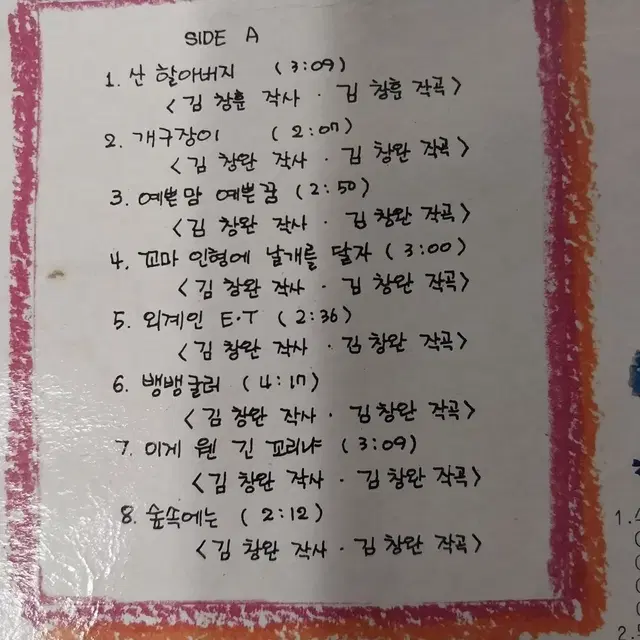 SIDE A
1. 산 할아버지 (3:09)
<김 창훈 작사 · 김 창훈 작곡>
2. 개구장이 (2:07)
<김 창완 작사 · 김 창완 작곡>
3. 예쁜맘 예쁜꿈 (2:50)
<김 창완 작사 · 김 창완 작곡>
4. 꼬마 인형에 날개를 달자 (3:00)
<김 창완 작사 · 김 창완 작곡>
5. 외계인 E·T (2:36)
<김 창완 작사 · 김 창완 작곡>
6. 뱅뱅글러 (4:17)
<김 창완 작사 · 김 창완 작곡>
7. 이게 웬 긴 꼬리냐 (3:09)
<김 창완 작사 · 김 창완 작곡>
8. 숲속에는 (2:12)
<김 창완 작사 · 김 창완 작곡>